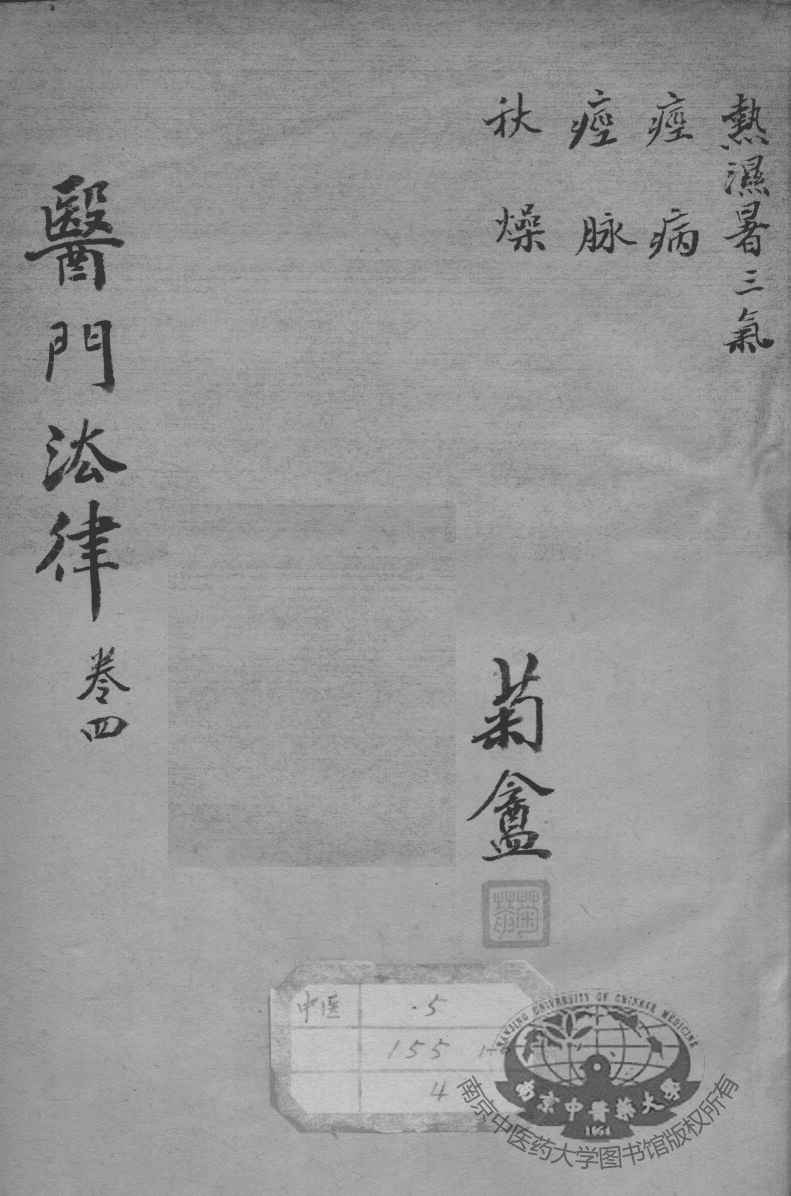 熱濕暑三氣
痙病
痙脉
秋燥
菊盦
醫門法律 卷四
中医 .5
155
4
NANJING UNIVERSITY OF CHINESE MEDICINE
南京中醫藥大學
1954
南京中医药大学图书馆版权所有